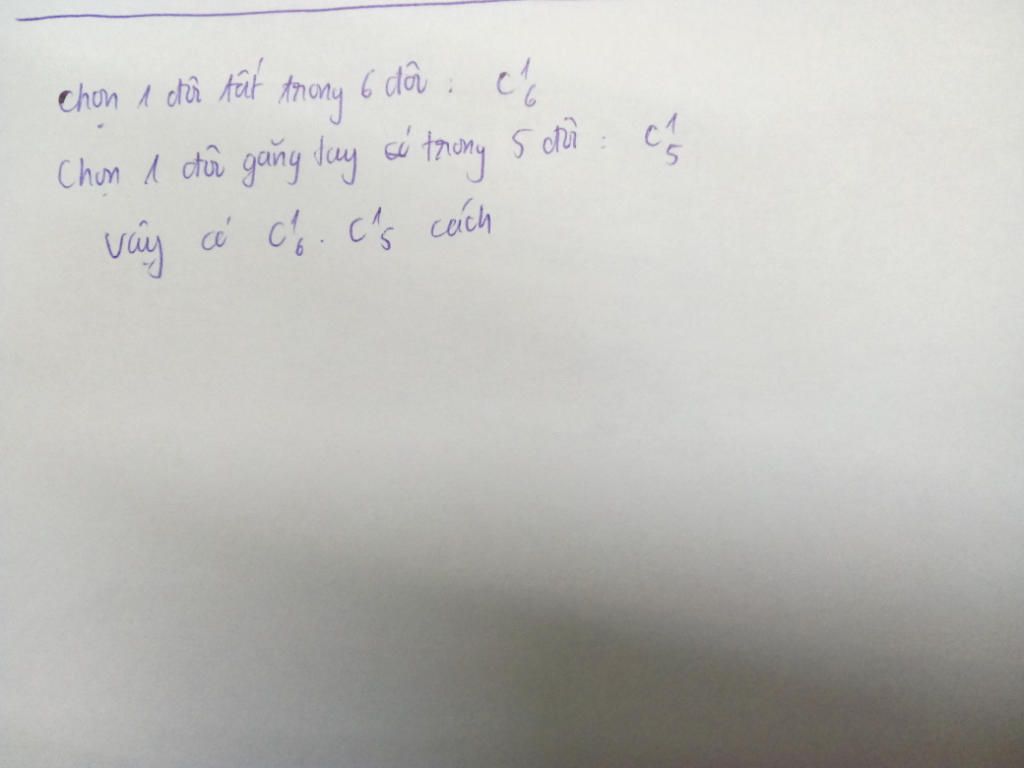 Chọn 1 đôi tất trong 6 đôi : C¹₆
Chọn 1 đôi găng tay có trong 5 đôi : C¹₅
Vậy có C¹₆ . C¹₅ cách